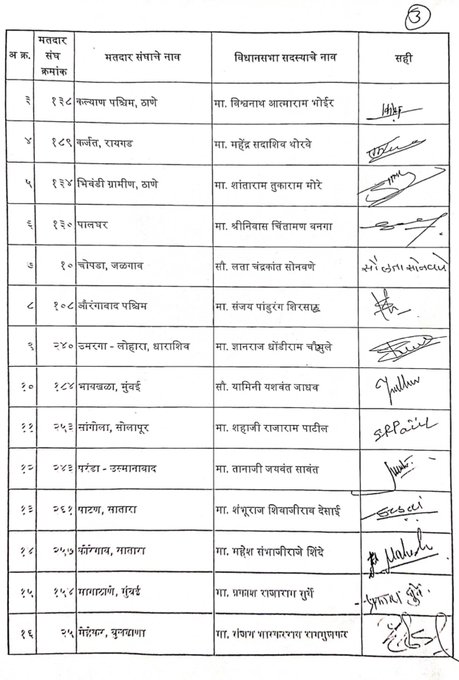 3
अ क्र. मतदार संघ क्रमांक मतदार संघाचे नाव विधानसभा सदस्याचे नाव सही
३ १३८ कल्याण पश्चिम, ठाणे मा. विश्वनाथ आत्माराम भोईर
४ १८९ कर्जत, रायगड मा. महेंद्र सदाशिव थोरवे
५ १३४ भिवंडी ग्रामीण, ठाणे मा. शांताराम तुकाराम मोरे
६ १३० पालघर मा. श्रीनिवास चिंतामण वनगा
७ १० चोपडा, जळगाव सौ. लता चंद्रकांत सोनवणे सौ लता सोनवणे
८ १०८ औरंगाबाद पश्चिम मा. संजय पांडुरंग शिरसाठ
९ २४० उमरगा - लोहारा, धाराशिव मा. ज्ञानराज धोंडीराम चौगुले
१० १८४ भायखळा, मुंबई सौ. यामिनी यशवंत जाधव
११ २५३ सांगोला, सोलापूर मा. शहाजी राजाराम पाटील SRPatil
१२ २४३ परंडा - उस्मानाबाद मा. तानाजी जयवंत सावंत
१३ २६१ पाटण, सातारा मा. शंभूराज शिवाजीराव देसाई
१४ २५७ कोरेगाव, सातारा मा. महेश संभाजीराजे शिंदे Mahesh
१५ १५४ मागाठाणे, मुंबई मा. प्रकाश राजाराम सुर्वे प्रकाश सुर्वे
१६ २५ मेहकर, बुलढाणा मा. संजय भास्करराव रायमुलकर